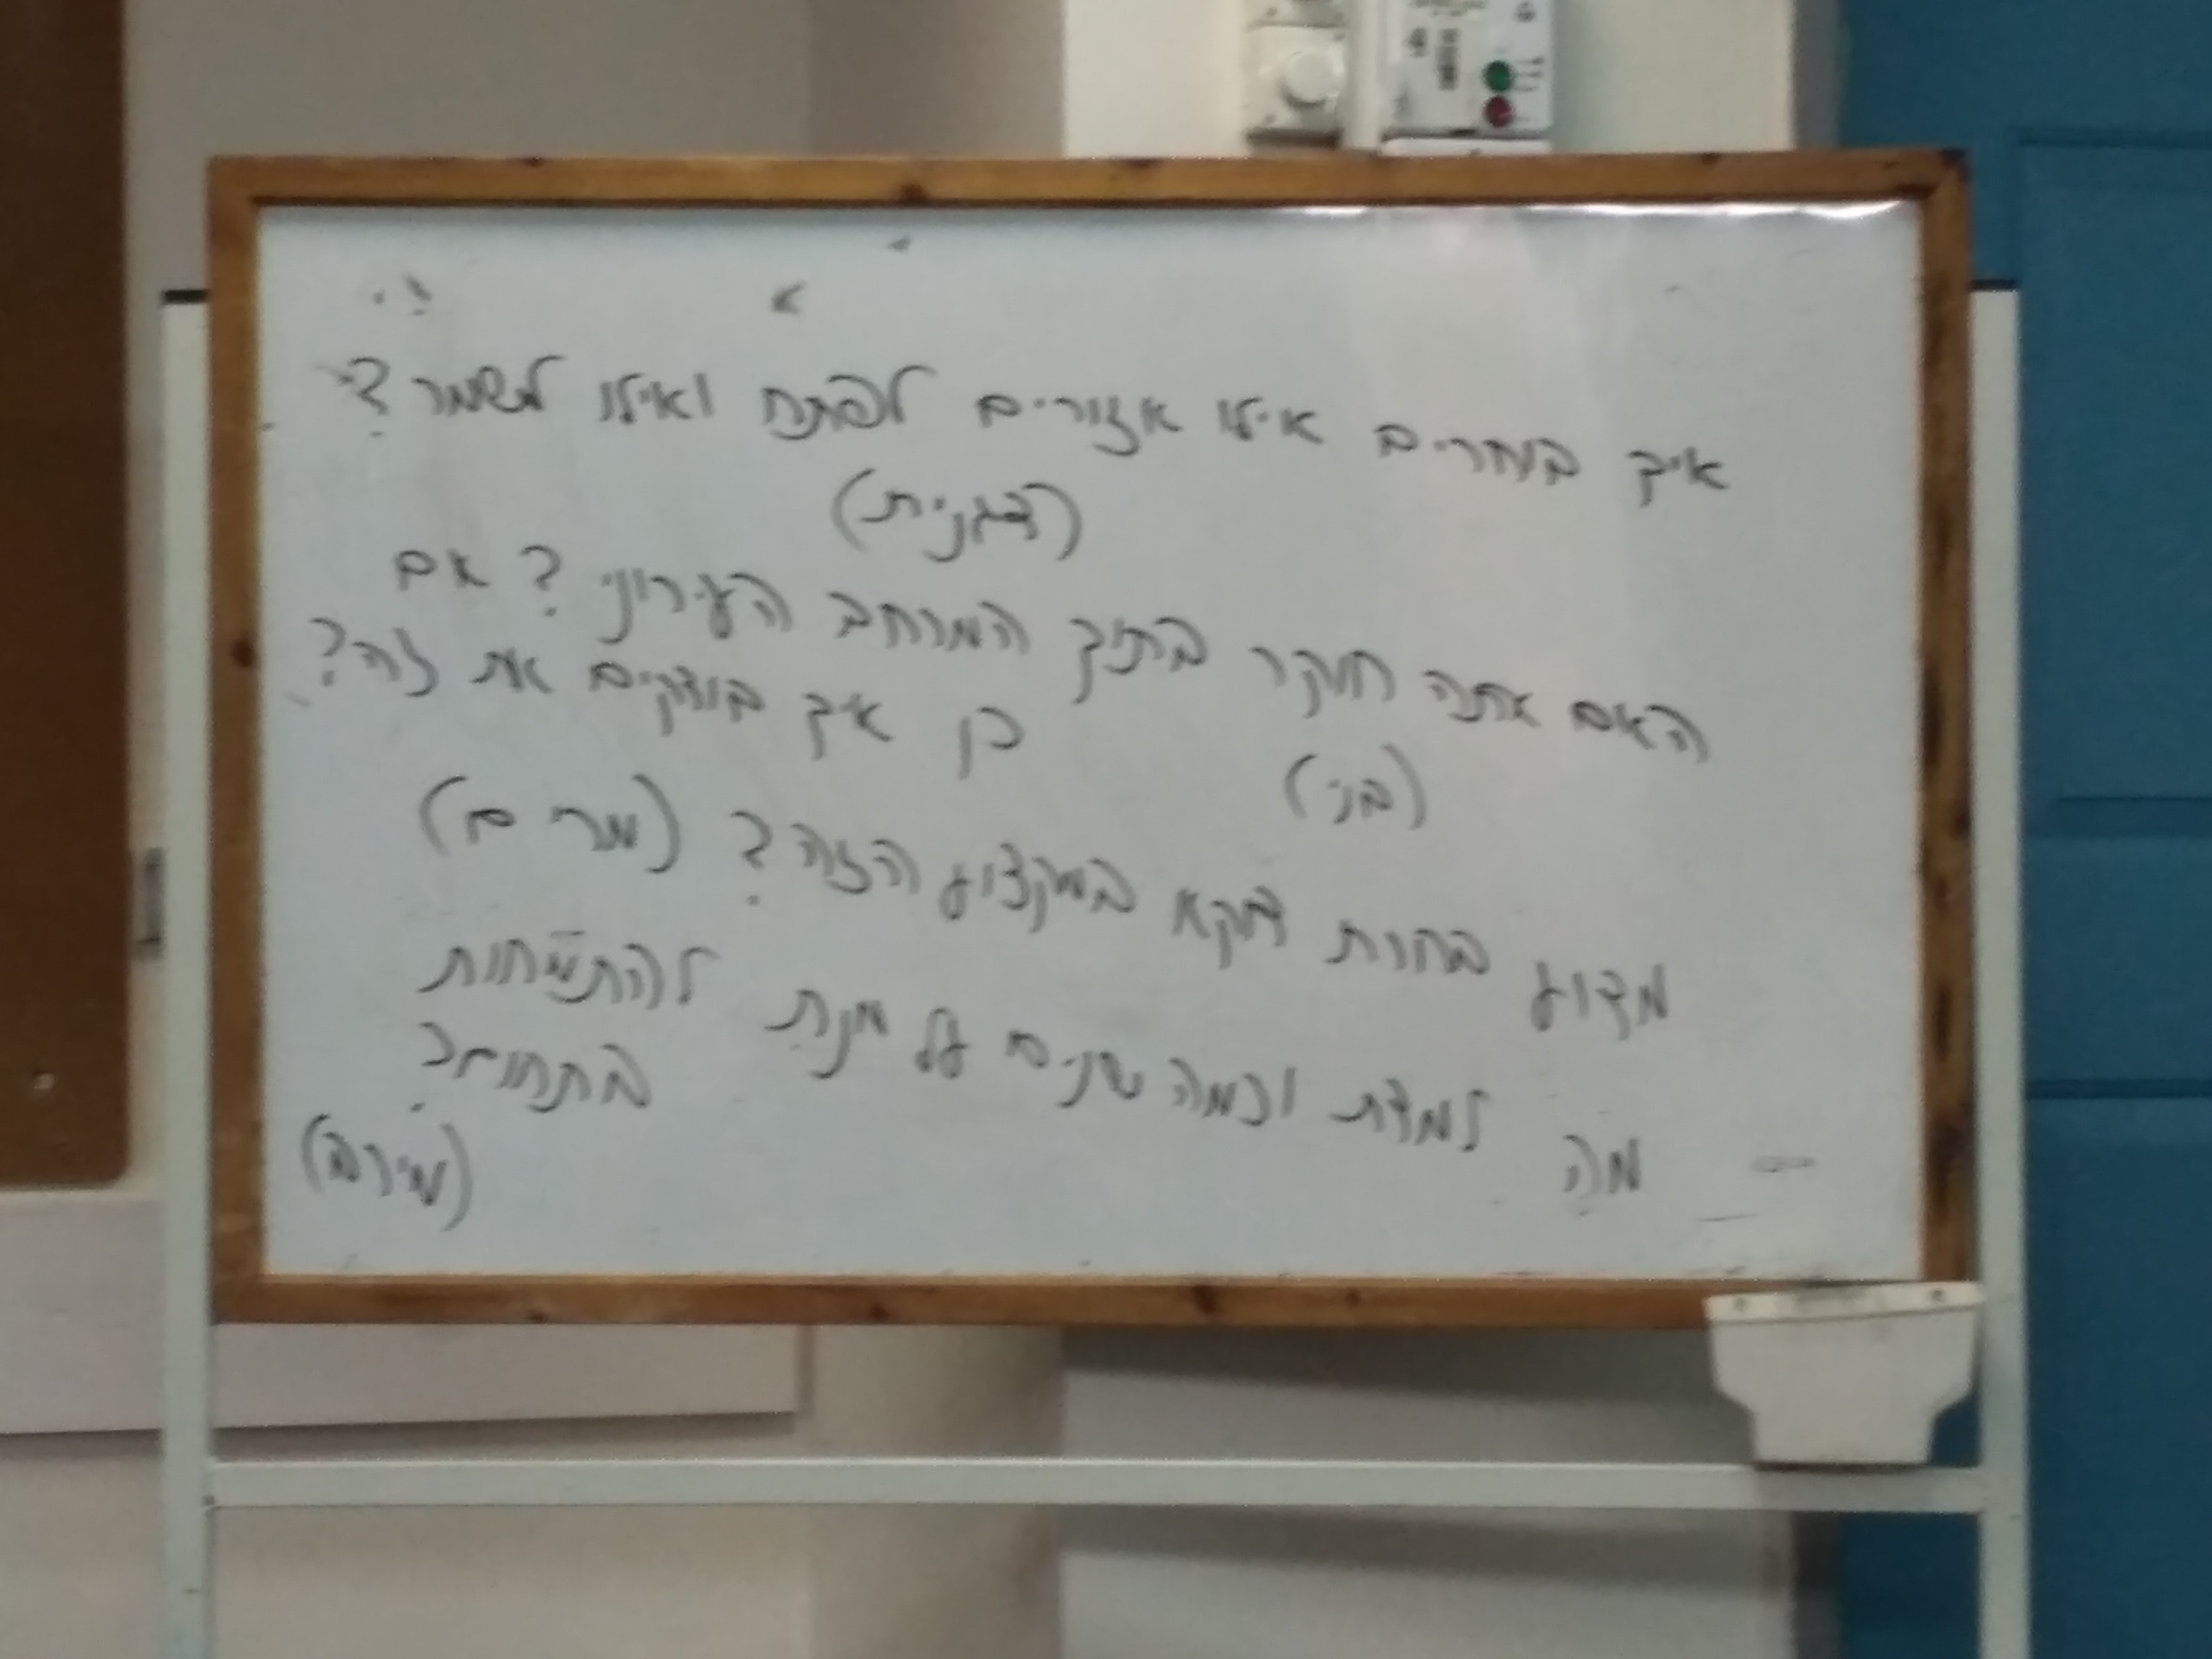 איך בוחרים אילו אזורים לפתח ואילו לשמר?
(דגנית)
האם אתה חוקר בתוך המרחב העירוני? אם
כן איך בודקים את זה?
(בני)
מדוע בחרת דווקא במקצוע הזה? (מרים)
מה למדת וכמה שנים על מנת להתמחות
בתחום?